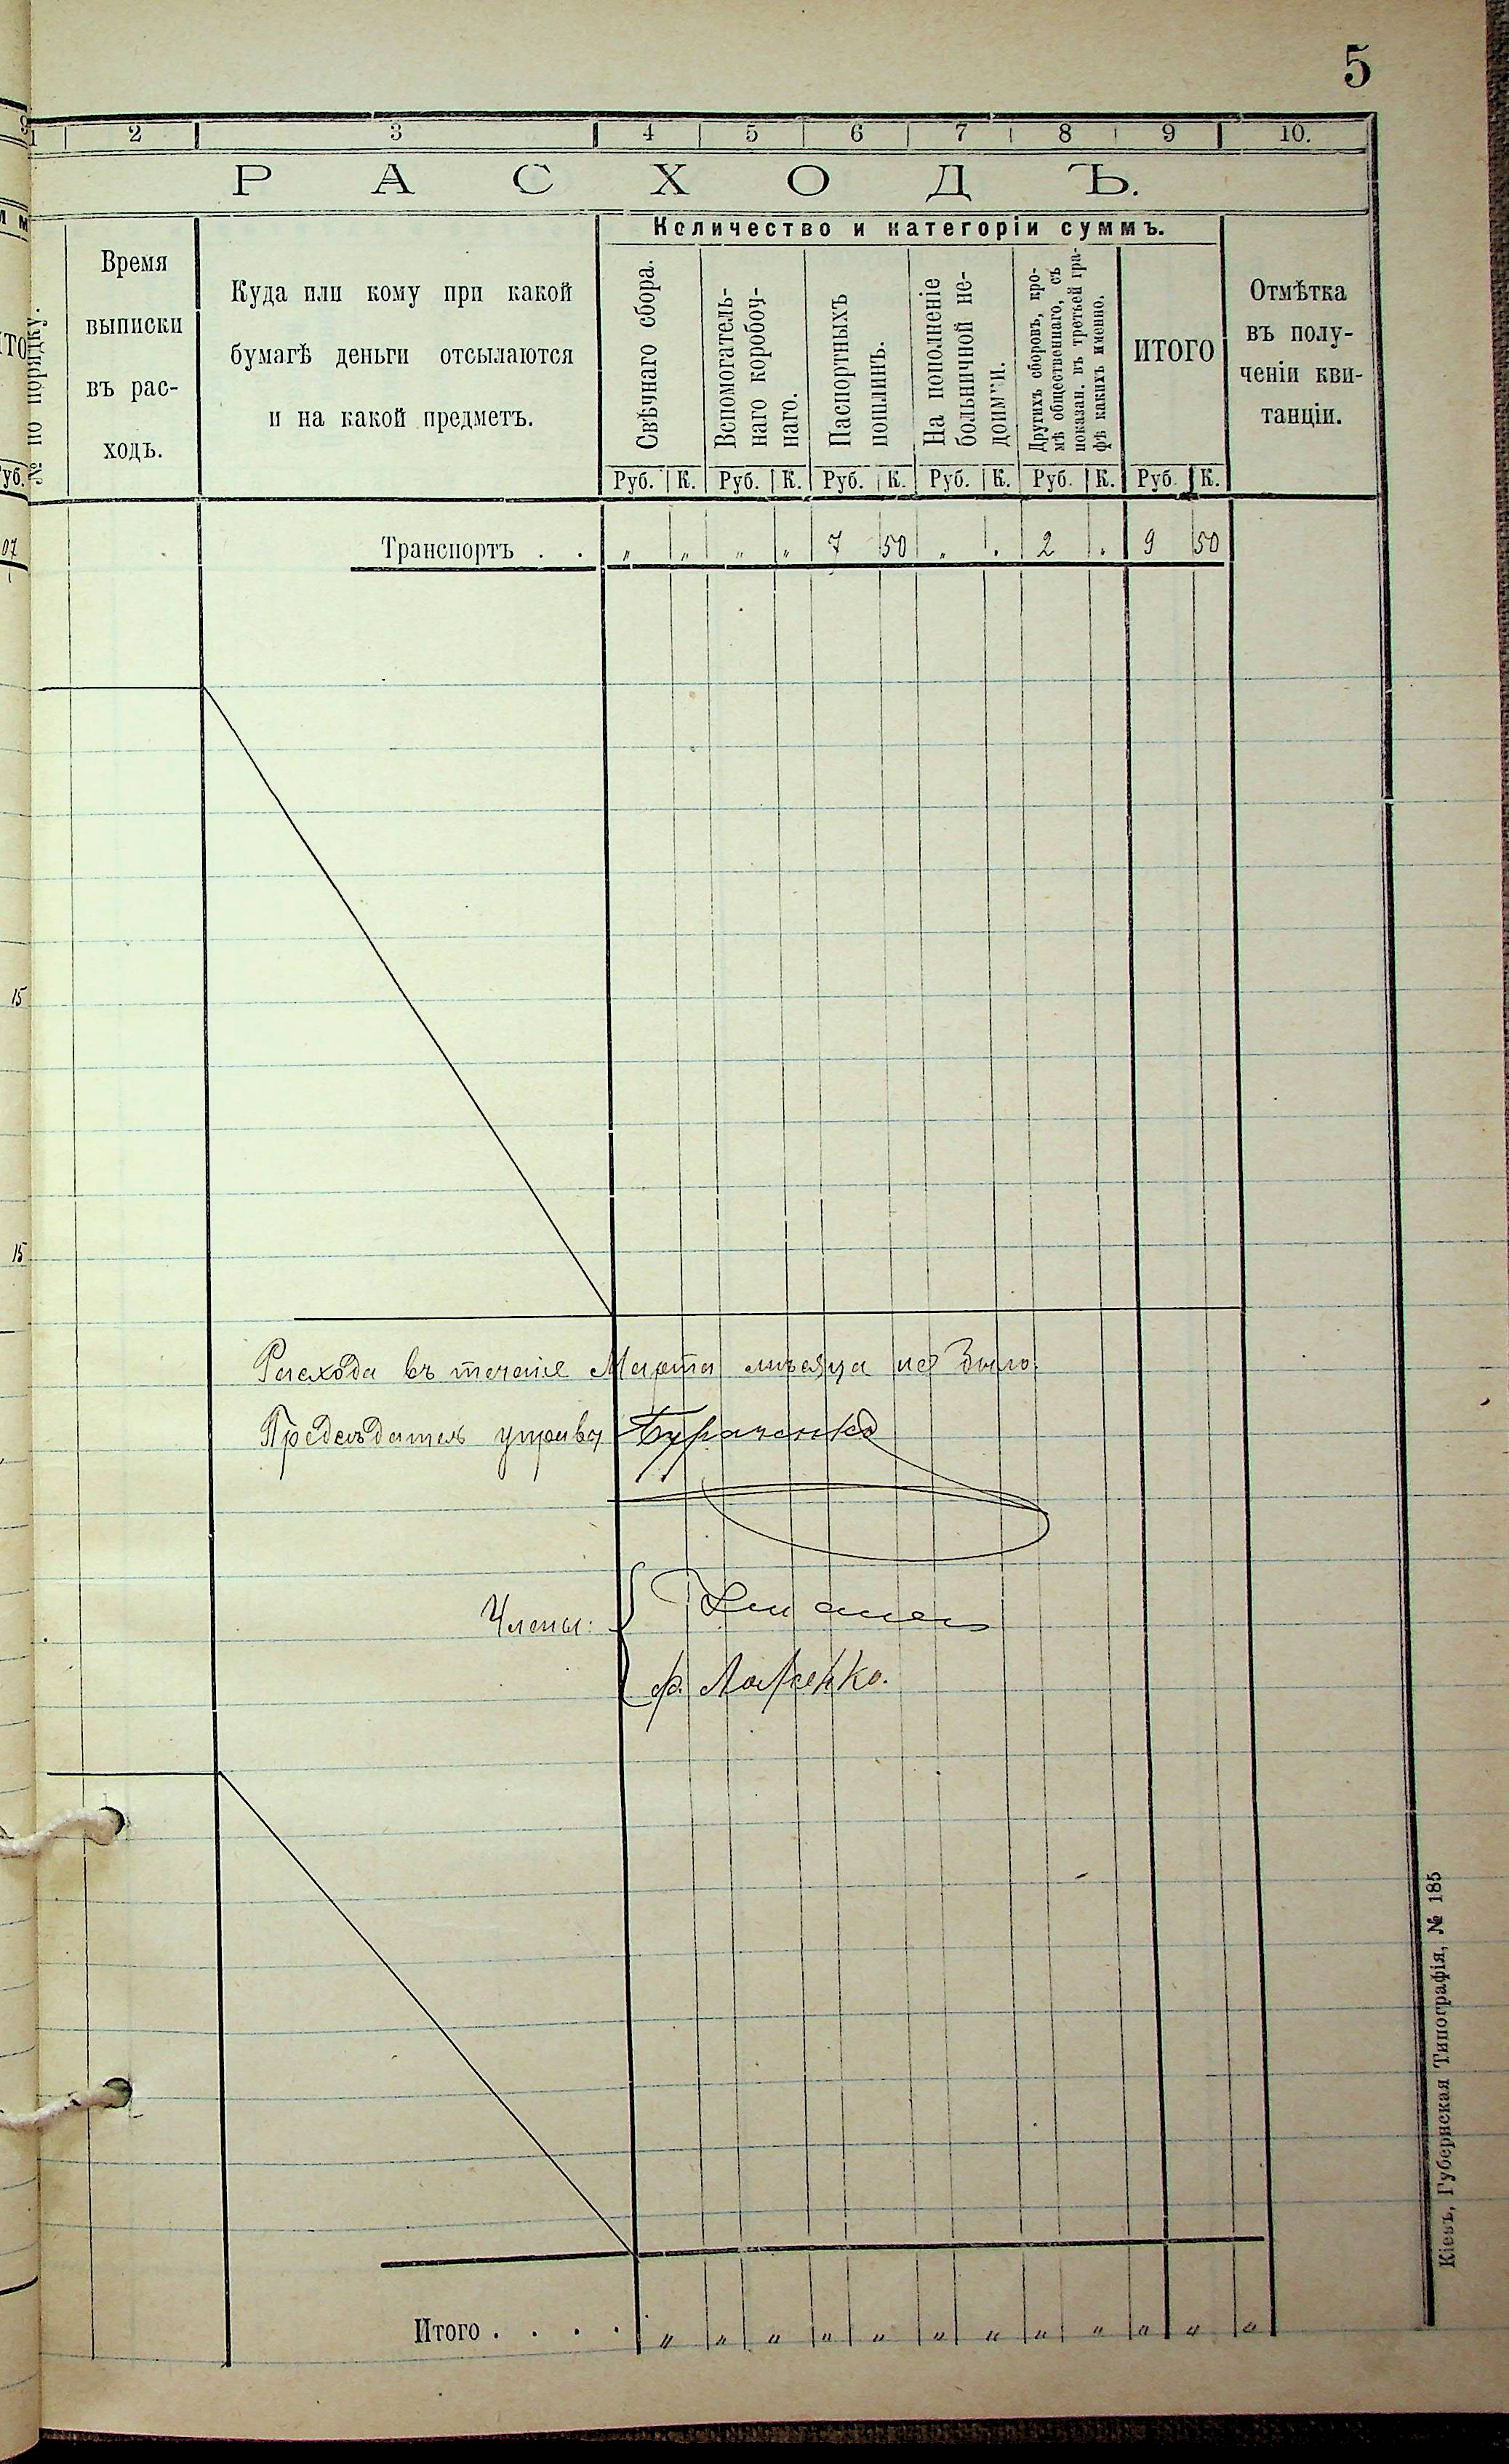 5
1 2 3 4 5 6 7 8 9 10.
РАСХОДЪ.
№ по порядку.
Время
выписки
въ рас-
ходъ.
Куда или кому при какой
бумагѣ деньги отсылаются
и на какой предметъ.
Количество и категоріи суммъ.
Свѣчнаго сбора.
Вспомогатель-
наго коробоч-
наго.
Паспортныхъ
пошлинъ.
На пополненіе
больничной не-
доимки.
Другихъ сборовъ, кро-
мѣ общественнаго, съ
показан. въ третьей гра-
фѣ какихъ именно.
ИТОГО
Отмѣтка
въ полу-
ченіи кви-
танціи.
Руб. К. Руб. К. Руб. К. Руб. К. Руб. К. Руб. К.
Транспортъ . . „ „ „ „ 7 50 „ . 2 . 9 50
07
15
15
Расхода въ теченіе Марта мѣсяца не было.
Предсѣдатель управы
Члены:
Итого . . . . „ „ „ „ „ „ „ „ „ „ „ „
Кіевъ, Губернская Типографія, № 185